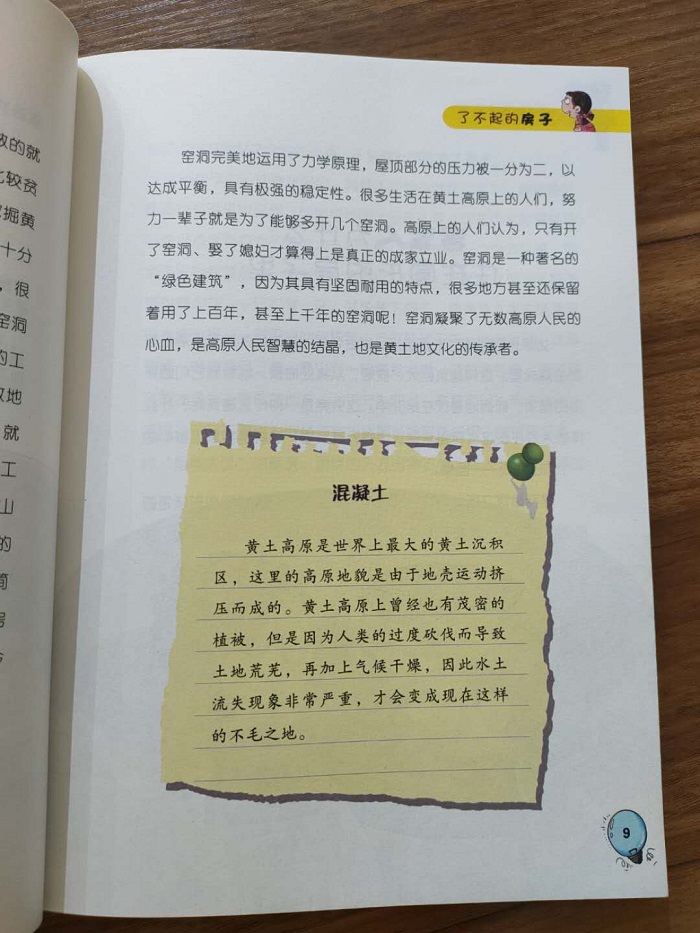 了不起的房子
窑洞完美地运用了力学原理，屋顶部分的压力被一分为二，以
达成平衡，具有极强的稳定性。很多生活在黄土高原上的人们，努
力一辈子就是为了能够多开几个窑洞。高原上的人们认为，只有开
了窑洞、娶了媳妇才算得上是真正的成家立业。窑洞是一种著名的
“绿色建筑”，因为其具有坚固耐用的特点，很多地方甚至还保留
着用了上百年，甚至上千年的窑洞呢！窑洞凝聚了无数高原人民的
心血，是高原人民智慧的结晶，也是黄土地文化的传承者。
混凝土
黄土高原是世界上最大的黄土沉积
区，这里的高原地貌是由于地壳运动挤
压而成的。黄土高原上曾经也有茂密的
植被，但是因为人类的过度砍伐而导致
土地荒芜，再加上气候干燥，因此水土
流失现象非常严重，才会变成现在这样
的不毛之地。
9
的就
比较贫
掘黄
十分
，很
窑洞
的工
地
就
工
山
的